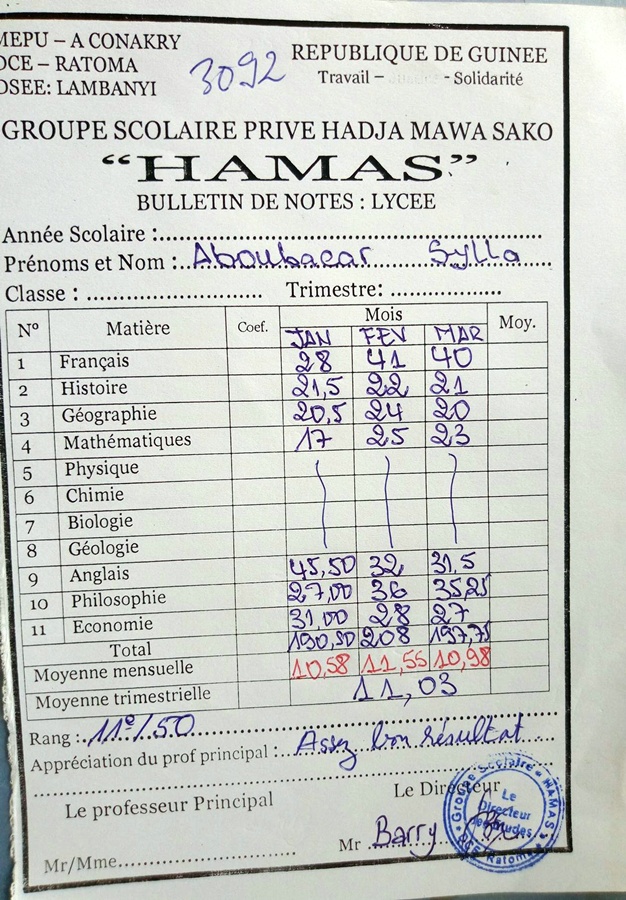 MEPU – A CONAKRY
DCE – RATOMA
OSEE: LAMBANYI
3092
REPUBLIQUE DE GUINEE
Travail – Justice - Solidarité
GROUPE SCOLAIRE PRIVE HADJA MAWA SAKO
“HAMAS”
BULLETIN DE NOTES : LYCEE
Année Scolaire :
Prénoms et Nom : Aboubacar Sylla
Classe : Trimestre:
N° Matière Coef. Mois Moy.
JAN FEV MAR
1 Français 28 41 40
2 Histoire 21,5 22 21
3 Géographie 20,5 24 20
4 Mathématiques 17 25 23
5 Physique
6 Chimie
7 Biologie
8 Géologie
9 Anglais 45,50 32 31.5
10 Philosophie 27,00 36 35,25
11 Economie 31,00 28 27
Total 190,50 208 197,75
Moyenne mensuelle 10,58 11,55 10,98
Moyenne trimestrielle 11,03
Rang : 11e/50
Appréciation du prof principal : Assez bon résultat
Le professeur Principal
Le Directeur
Mr/Mme
Mr Barry
Groupe Scolaire « HAMAS »
Le Directeur des Etudes
DCE Ratoma